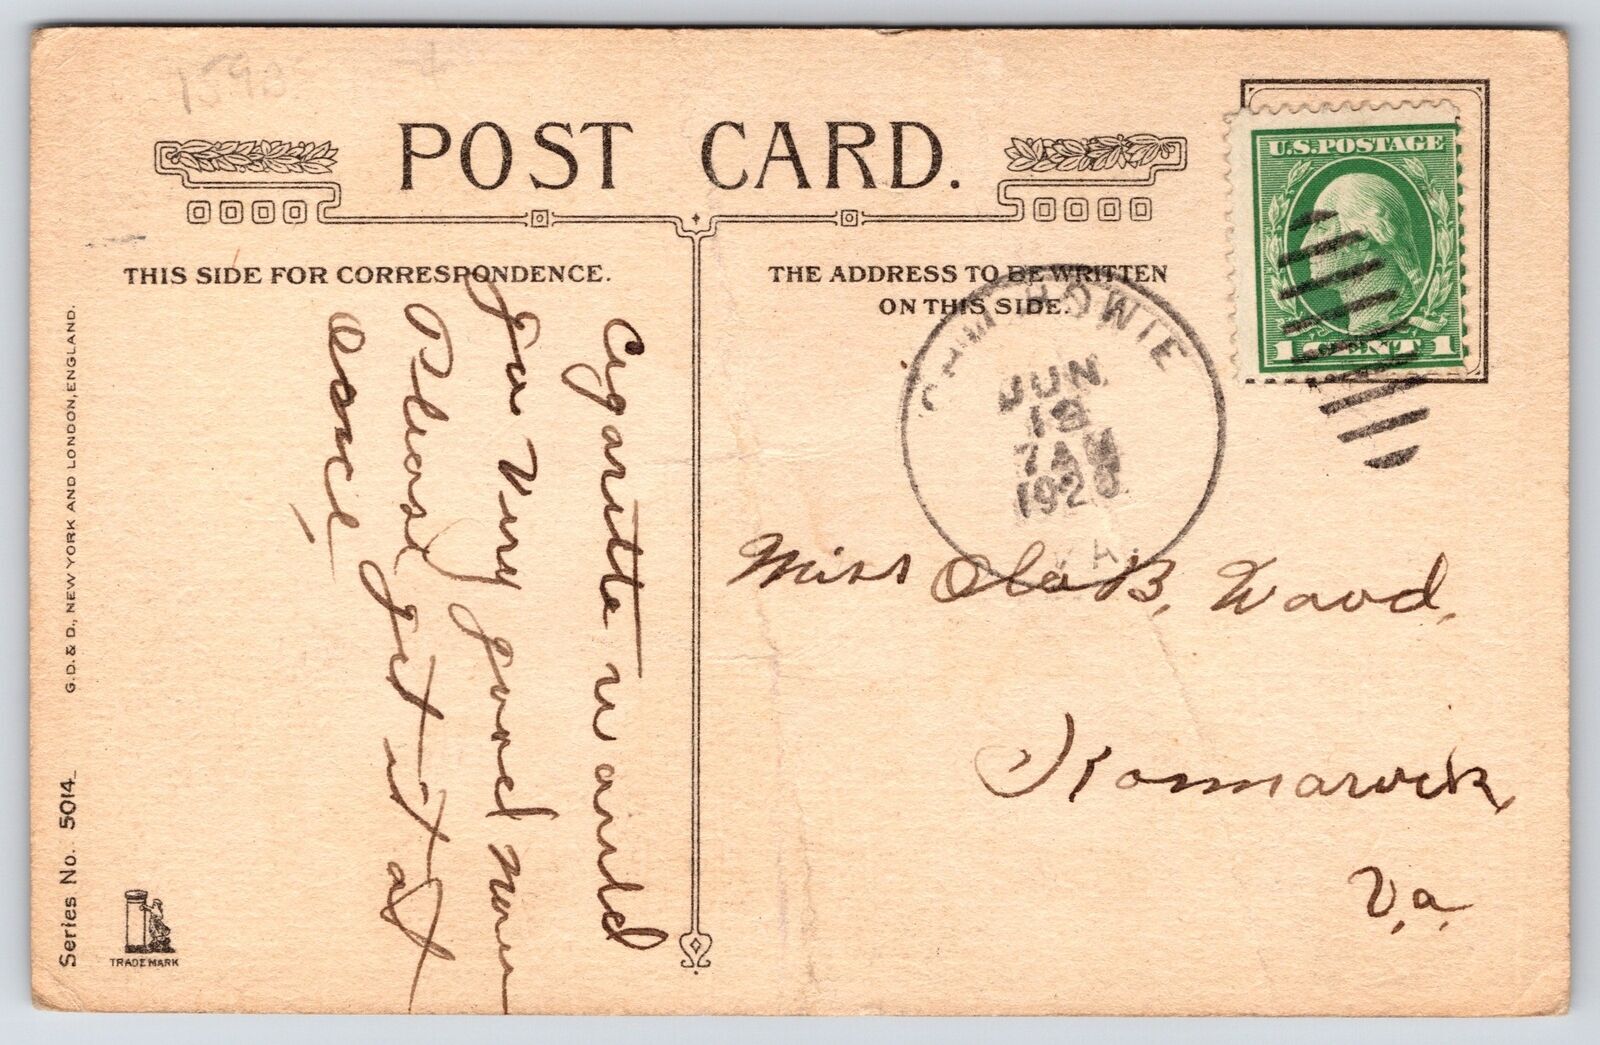 159B
POST CARD.
THIS SIDE FOR CORRESPONDENCE.
THE ADDRESS TO BE WRITTEN
ON THIS SIDE.
U.S. POSTAGE
1 CENT 1
JUN
18
7 AM
192
VA.
Miss Ola B. Wood.
Va.
would
for Very good
Please get it at
once
G.D. & D., NEW YORK AND LONDON, ENGLAND.
Series No. 5014
TRADE MARK